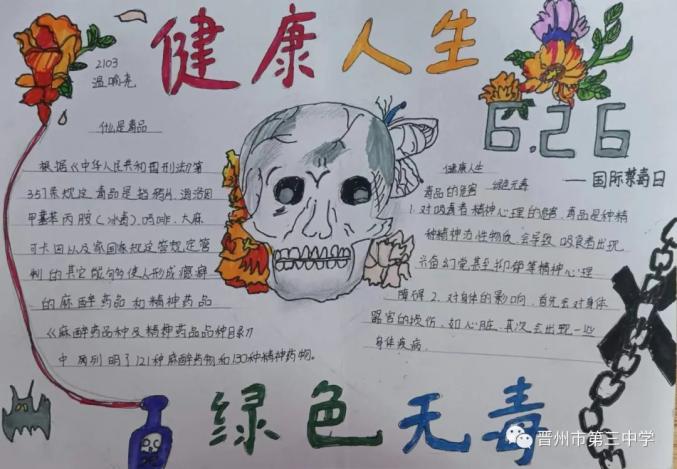 健康人生
2103
温喻尧
什么是毒品
根据《中华人民共和国刑法》第
357条规定毒品是指鸦片、海洛因
甲基苯丙胺(冰毒)、吗啡、大麻
可卡因以及国家规定管规定管
制的其它能够使人形成瘾癖
的麻醉药品和精神药品
《麻醉药品种及精神药品品种目录》
中列明了121种麻醉药物和130种精神药物。
6.26
——国际禁毒日
健康人生
绿色无毒
毒品的危害
1.对吸毒者精神心理的危害,毒品是种精
神精神力性物质,会导致吸食者出现
幻觉甚至抑郁等精神心理
障碍2.对身体的影响,首先会对身体
器官的损伤,如心脏,其次会出现一些
身体疾病.
绿色无毒
晋州市第三中学